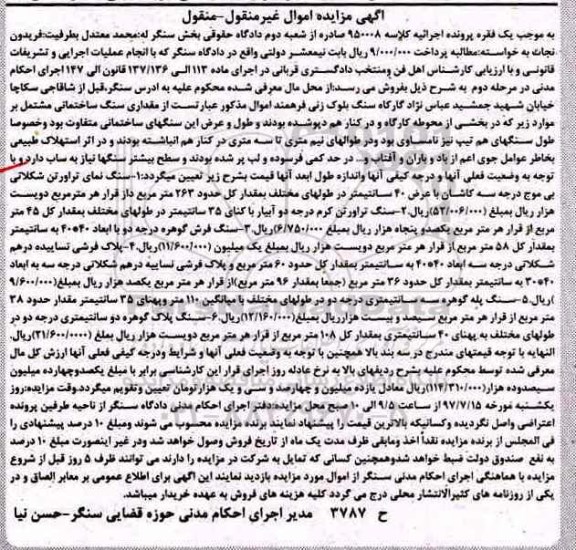 آگهی مزایده اموال غیرمنقول-منقول
به موجب یک فقره پرونده اجرائیه کلاسه ۹۵۰۰۰۸ صادره از شعبه دوم دادگاه حقوقی بخش سنگر له:محمد معتدل بطرفیت:فریدون
نجات به خواسته:مطالبه پرداخت ۹/۰۰۰/۰۰۰ ریال بابت نیمعشر دولتی واقع در دادگاه سنگر که با انجام عملیات اجرایی و تشریفات
قانونی و با ارزیابی کارشناس اهل فن ومنتخب دادگستری قربانی در اجرای ماده ۱۱۳ الی ۱۳۷/۱۳۶ قانون الی ۱۴۷ اجرای احکام
مدنی در مرحله دوم به شرح ذیل بفروش می رسد:از محل مال معرفی شده محکوم علیه به ادرس سنگر،قبل از شاقاجی سکاچا
خیابان شهید جمشید عباس نژاد کارگاه سنگ بلوک زنی فرهمند اموال مذکور عبارتست از مقداری سنگ ساختمانی مشتمل بر
موارد زیر که در بخشی از محوطه کارگاه و در کنار هم دپوشده بودند و طول و عرض این سنگهای ساختمانی متفاوت بود وخصوصا
طول سنگهای هم تیپ نیز نامساوی بود ودر طولهای نیم متری تا سه متری در کنار هم انباشته بودند و در اثر استهلاک طبیعی
بخاطر عوامل جوی اعم از باد و باران و آفتاب و... در حد کمی فرسوده و لب پر شده بودند و سطح بیشتر سنگها نیاز به ساب دارد.و با
توجه به وضعیت فعلی آنها و درجه کیفی آنها واندازه طول ابعد آنها قیمت بشرح زیر تعیین میگردد:۱-سنگ نمای تراورتن شکلاتی
بی موج درجه سه کاشان با عرض ۴۰ سانتیمتر در طولهای مختلف بمقدار کل حدود ۲۶۳ متر مربع دار قرار هر مترمربع دویست
هزار ریال بمبلغ (۵۲/۰۰۶/۰۰۰)ریال.۲-سنگ تراورتن کرم درجه دو آبیار با کنای ۳۵ سانتیمتر در طولهای مختلف بمقدار کل ۴۵ متر
مربع از قرار هر متر مربع یکصدو پنجاه هزار ریال بمبلغ (۶/۷۵۰/۰۰۰)ریال.۳-سنگ فرش گوهره درجه دو با ابعاد ۴۰*۴۰ به سانتیمتر
بمقدار کل ۵۸ متر مربع.از قرار هر متر مربع دویست هزار ریال بمبلغ یک میلیون (۱۱/۶۰۰/۰۰۰)ریال.۴-پلاک فرشی نساییده درهم
شکلاتی درجه سه ابعاد ۴۰*۴۰ به سانتیمتر بمقدار کل حدود ۶۰ متر مربع و پلاک فرشی نساییه درهم شکلاتی درجه سه به ابعاد
۴۰*۳۰ به سانتیمتر بمقدار کل حدود ۳۶ متر مربع (جمعا بمقدار ۹۶ متر مربع)از قرار هر متر مربع یکصد هزار ریال بمبلغ(۹/۶۰۰/۰۰۰
)ریال.۵-سنگ پله گوهره سه سانتیمتری درجه دو در طولهای مختلف با میانگین ۱۱۰ متر وپهنای ۳۵ سانتیمتر مقدار حدود ۳۸
متر مربع از قرار هر متر مربع سیصد و بیست هزارریال بمبلغ (۱۲/۱۶۰/۰۰۰)ریال.۶-سنگ پلاک گوهره دو سانتیمتری درجه دو در
طولهای مختلف به پهنای ۴۰ سانتیمتری بمقدار کل ۱۰۸ متر مربع از قرار هر متر مربع دویست هزار ریال بمبلغ (۲۱/۶۰۰/۰۰۰)ریال.
النهایه با توجه قیمتهای مندرج در سه بند بالا همچنین با توجه به وضعیت فعلی آنها و شرایط ودرجه کیفی فعلی آنها ارزش کل مال
معرفی شده توسط محکوم علیه بشرح ردیفهای بالا به نرخ عادله روز اجرای قرار این کارشناسی برابر با مبلغ یکصدوچهارده میلیون
سیصدوده هزار(۱۱۴/۳۱۰/۰۰۰)ریال معادل یازده میلیون و چهارصد و سی و یک هزارتومان تعیین وتقویم میگردد.وقت مزایده:روز
یکشنبه مورخه ۹۷/۷/۱۵ از ساعت ۹/۵ الی ۱۰ صبح محل مزایده:دفتر اجرای احکام مدنی دادگاه سنگر از ناحیه طرفین پرونده
اعتراضی واصل نگردیده وکسانیکه بالاترین قیمت را پیشنهاد نمایند برنده مزایده محسوب می شوند ومبلغ ۱۰ درصد پیشنهادی را
فی المجلس از برنده مزایده نقداً اخذ ومابقی ظرف مدت یک ماه از تاریخ فروش وصول خواهد شد ودر غیر اینصورت مبلغ ۱۰ درصد
به نفع صندوق دولت ضبط خواهد شدوهمچنین کسانی که تمایل به شرکت در مزایده را دارند می توانند ظرف ۵ روز قبل از شروع
مزایده با هماهنگی اجرای احکام مدنی سنگر از اموال مورد مزایده بازدید نمایند این آگهی برای اطلاع عمومی بر معابر الصاق و در
یکی از روزنامه های کثیرالانتشار محلی درج می گردد کلیه هزینه های فروش به عهده خریدار میباشد.
ح ۳۷۸۷ مدیر اجرای احکام مدنی حوزه قضایی سنگر-حسن نیا